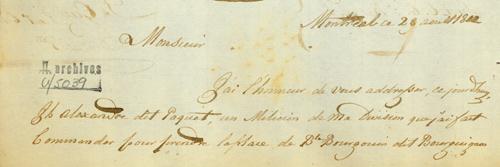 Montréal ce 28 août 1812
Monsieur
archives
U/5039
J'ai l'honneur de vous addresser, ce jourd'huy
Jh Alexandre dit Paquet, un Milicien de Ma Division que j'ai fait
Commander pour prendre la place de Bte Bourgouin dit Bourguignon